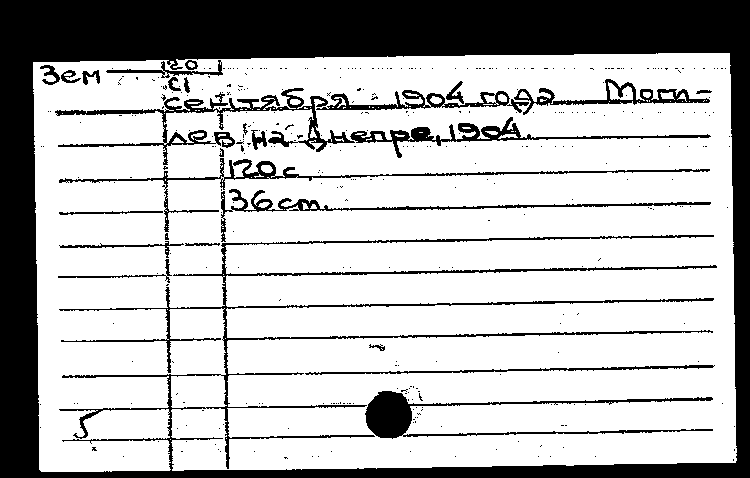 Зем 20
с1
сентября 1904 года Моги-
лев, на Днепре, 1904.
120 с.
36 cm.
5